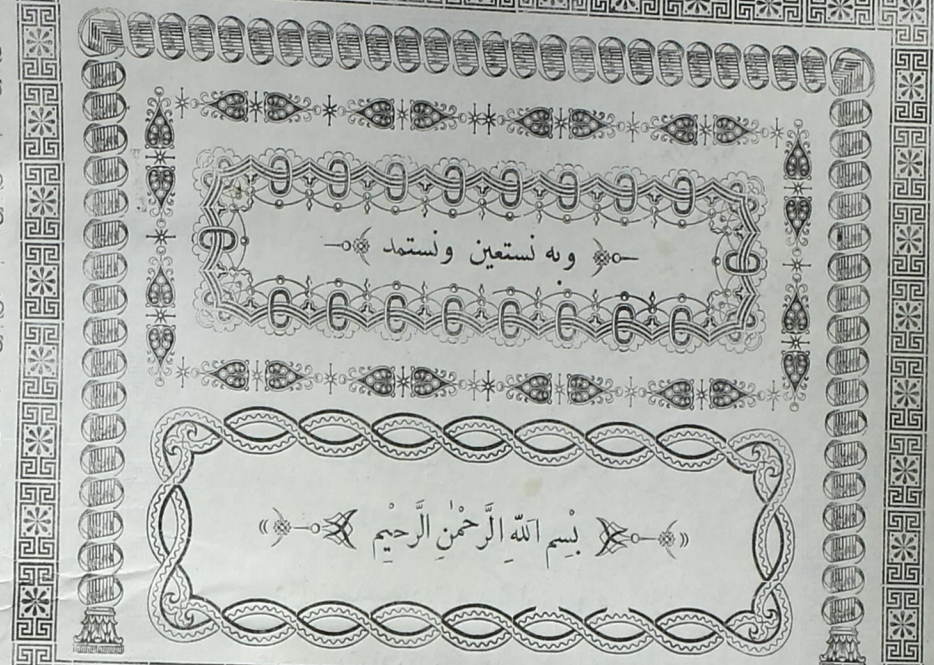 وبه نستعين ونستمد
بْسِمِ اللّٰهِ الرَّحْمٰنِ الرَّحِيْمِ